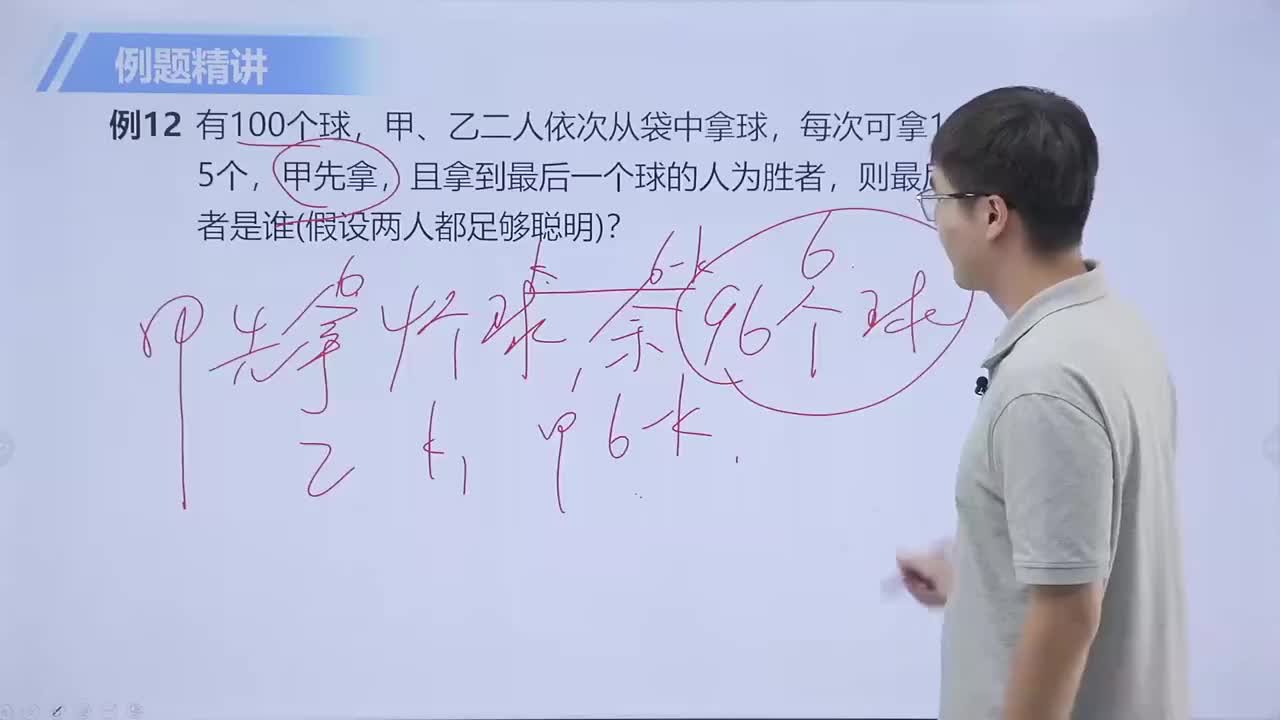 例题精讲
例12 有100个球，甲、乙二人依次从袋中拿球，每次可拿1
5个，甲先拿，且拿到最后一个球的人为胜者，则最后
者是谁(假设两人都足够聪明)？
6 k 6-k 6
甲先拿4个球，余96个球
乙 k，甲 6-k